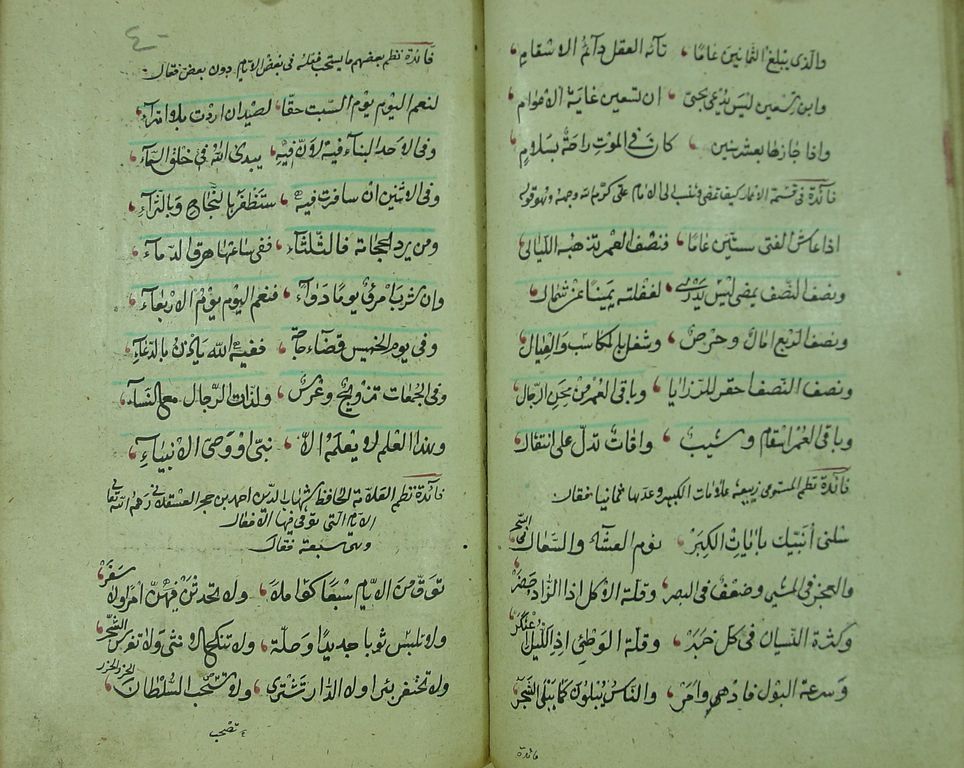 والذي يبلغ الثمانين عاما، تائه العقل دائم الاسقام
وابن تسعين ليس يدعى بحي، ان لتسعين غاية الاعوام
واذا جازها بعشر سنين، كان في الموت راحة بسلام
فائدة في قسمة الاعمار كيف تمضي الى الامام علي كرم الله وجهه وهو قوله
اذا عاش الفتى ستين عاما، فنصف العمر تذهبه الليالي
ونصف النصف يمضي ليس يدري، لغفلته يمينا عن شمال
ونصف الربع امال وحرص، وشغل بالمكاسب والعيال
ونصف النصف، وباقي العمر من الرجال
وباقي العمر اسقام وشيب، وافات تدل على انتقال
فائدة نظم علامات الكبر وعدها ثمانيا فقال
سلني أنبيك بايات الكبر، نوم العشاء والسعال في السحر
والعجز في المشي وضعف في البصر، وقلة الاكل اذا الزاد حضر
وكثرة النسيان في كل خبر، وقلة الوطئ اذا الليل اعتكر
وسرعة البول فادهى وامر، والناس يبلون كما يبلى الشجر
فائدة
٤٠
فائدة نظم بعضهم ما يستحب فعله في بعض الايام دون بعض فقال
لنعم اليوم يوم السبت حقا، لصيد ان اردت بلا امتراء
وفي الاحد البناء فيه لان فيه، يبدئ الله في خلق السماء
وفي الاثنين ان سافرت فيه، ستظفر بالنجاح وبالثراء
ومن يرد الحجامة فالثلثاء، ففي ساعتها هرق الدماء
وان شرب امرئ يوما دواء، فنعم اليوم يوم الاربعاء
وفي يوم الخميس قضاء حاج، ففيه الله يأذن بالدعاء
وفي الجمعات تزويج وعرس، ولذات الرجال مع النساء
وهذا العلم لا يعلمه الا، نبي او وصي الانبياء
فائدة نظم العلامة الحافظ شهاب الدين احمد بن حجر العسقلاني رحمه الله تعالى
الايام التي توقي فيها فقال
وهي سبعة فقال
توق من الايام سبعا كواملا، ولا تحدثن فيهن امرا ولا سفر
ولا تلبس ثوبا جديدا وحلة، ولا تنكح الانثى ولا تغرس الشجر
ولا تحتفر بئرا ولا الدار تشتري، ولا تصحب السلطان الحذر الحذر
تصحب